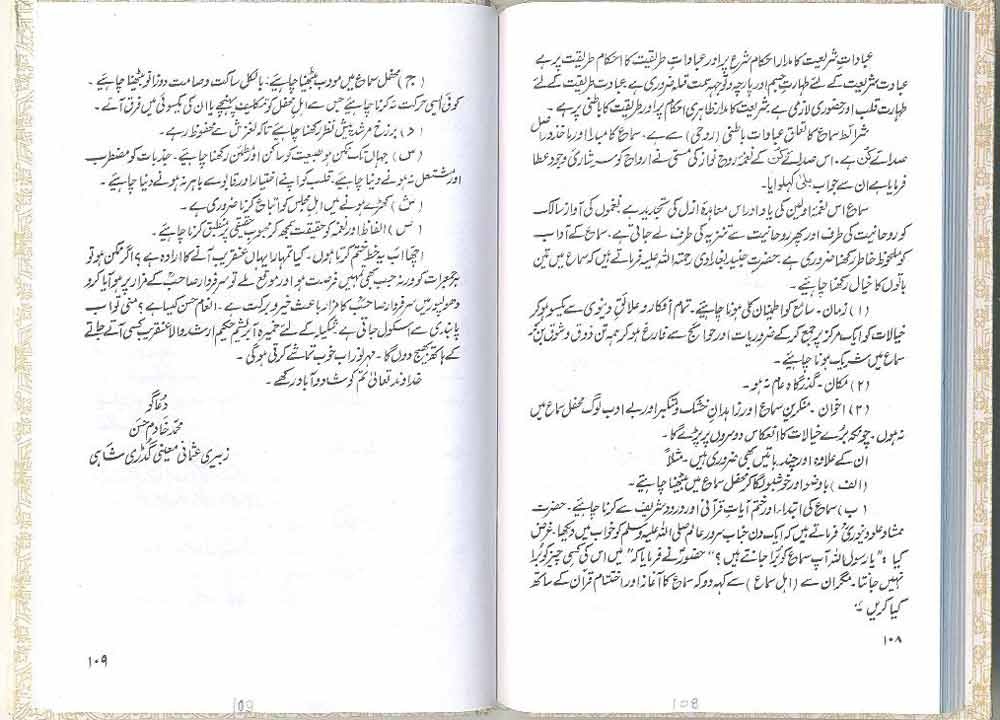 عبادات شریعت کا مدار احکام شرع پر اور عبادات طریقت کا احکام طریقت پر ہے
عبادت شریعت کے لئے طہارت جسم اور پارچہ و توجہ سمت قبلہ ضروری ہے۔ عبادت طریقت کے لئے
طہارت قلب اور حضوری لازمی ہے شریعت کا مدار ظاہری احکام پر اور طریقت کا باطنی پر ہے۔
شرائط سماع کا تعلق عبادات باطنی (روحی) سے ہے۔ سماع کا مبدا اور ماخذ دراصل
صدائے کن ہے۔ اس صدائے کن کے نغمۂ روح نواز کی مستی نے ارواح کو سرشاری وجود عطا
فرمایا ہے ان سے جواب بلیٰ کہلوایا۔
سماع اس نغمۂ اولین کی یاد اور اس معاہدۂ ازل کی تجدید ہے۔ نغموں کی آواز سالک
کو روحانیت کی طرف اور پھر روحانیت سے تنزیہ کی طرف لے جاتی ہے۔ سماع کے آداب
کو ملحوظ خاطر رکھنا ضروری ہے۔ حضرت جنید بغدادی رحمتہ اللہ علیہ فرماتے ہیں کہ سماع میں تین
باتوں کا خیال رکھنا چاہیئے۔
(۱) زمان۔ سامع کو اطمینان کلی ہونا چاہیئے۔ تمام افکار و علائق دنیوی سے یکسو ہو کر
خیالات کو ایک مرکز پر جمع کر کے ضروریات اور حوائج سے فارغ ہو کر ہمہ تن ذوق و شوق بن کر
سماع میں شریک ہونا چاہیئے۔
(۲) مکان۔ گذرگاہ عام نہ ہو۔
(۳) اخوان۔ منکرین سماع اور زاہدان خشک و متکبر اور بے ادب لوگ محفل سماع میں
نہ ہوں۔ چونکہ برُے خیالات کا انعکاس دوسروں پر پڑے گا۔
ان کے علاوہ اور چند باتیں بھی ضروری ہیں۔ مثلاً
(الف) باوضو اور خوشبو لگا کر محفل سماع میں بیٹھنا چاہئے۔
(ب) سماع کی ابتداء اور ختم آیات قرآنی اور درود شریف سے کرنا چاہیئے۔ حضرت
ممشاد علو دینوریؒ فرماتے ہیں کہ ایک دن جناب سرور عالم صلی اللہ علیہ وسلم کو خواب میں دیکھا، عرض
کیا : "یا رسول اللہ آپ سماع کو بُرا جانتے ہیں؟" حضورؐ نے فرمایا کہ "میں اس کی کسی چیز کو بُرا
نہیں جانتا۔ مگر ان سے (اہل سماع) سے کہہ دو کہ سماع کا آغاز اور اختتام قرآن کے ساتھ
کیا کریں۔"
۱۰۸
(ج) محفل سماع میں مودب بیٹھنا چاہیئے: بالکل ساکت و صامت دوزانو بیٹھنا چاہیئے۔
کوئی ایسی حرکت نہ کرنا چاہیئے جس سے اہل محفل کو تکلیف پہنچے یا ان کی یکسوئی میں فرق آئے۔
(د) برزخ مرشد پیش نظر رکھنا چاہیئے تاکہ لغزش سے محفوظ رہے۔
(س) جہاں تک ممکن ہو طبیعت کو ساکن اور مطمئن رکھنا چاہیئے۔ جذبات کو مضطرب
اور مشتعل نہ ہونے دینا چاہیئے۔ قلب کو اپنے اختیار اور قابو سے باہر نہ ہونے دینا چاہیئے۔
(ش) کھڑے ہونے میں اہل مجلس کو اتباع کرنا ضروری ہے۔
(ص) الفاظ اور نغمہ کو حقیقت سمجھ کر محبوب حقیقی پر منطبق کرنا چاہیئے۔
اچھا اب یہ خط ختم کرتا ہوں۔ کیا تمہارا یہاں عنقریب آنے کا ارادہ ہے؟ اگر ممکن ہو تو
ہر جمعرات کو ورنہ جب بھی تمہیں فرصت ہو اور موقع ملے تو سرفرو صاحبؒ کے مزار پر ہو آیا کرو
دھولپور میں سرفرو صاحبؒ کا مزار باعث خیر و برکت ہے۔ انعام حسن کیسا ہے؟ منی تو اب
پابندی سے اسکول جاتی ہے۔ شکیلہ کے لئے خمیرہ آبریشم حکیم ارشد والا عنقریب کسی آتے جاتے
کے ہاتھ بھیج دوں گا۔ مہر نور اب خوب تماشے کرتی ہوگی۔
خداوند تعالیٰ تم کو شاد و آباد رکھے۔
دعا گو
محمد خادم حسن
زبیری عثمانی معینی گدڑی شاہی
۱۰۹
109
108